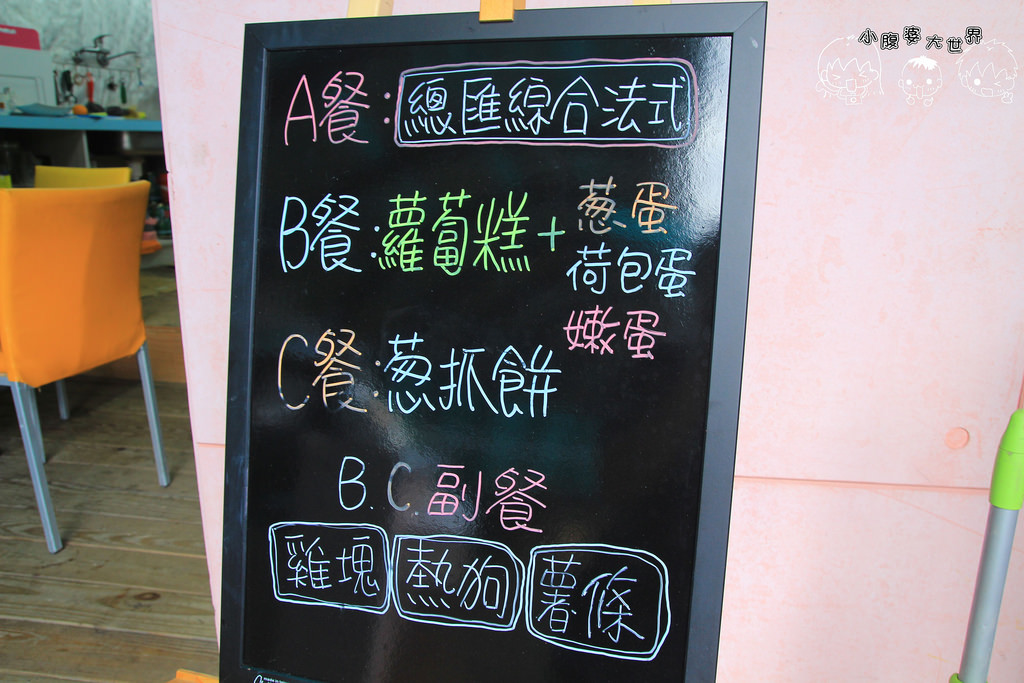 小腹婆大世界
A餐:總匯綜合法式
B餐:蘿蔔糕+蔥蛋
荷包蛋
嫩蛋
C餐:蔥抓餅
B.C.副餐
雞塊 熱狗 薯條